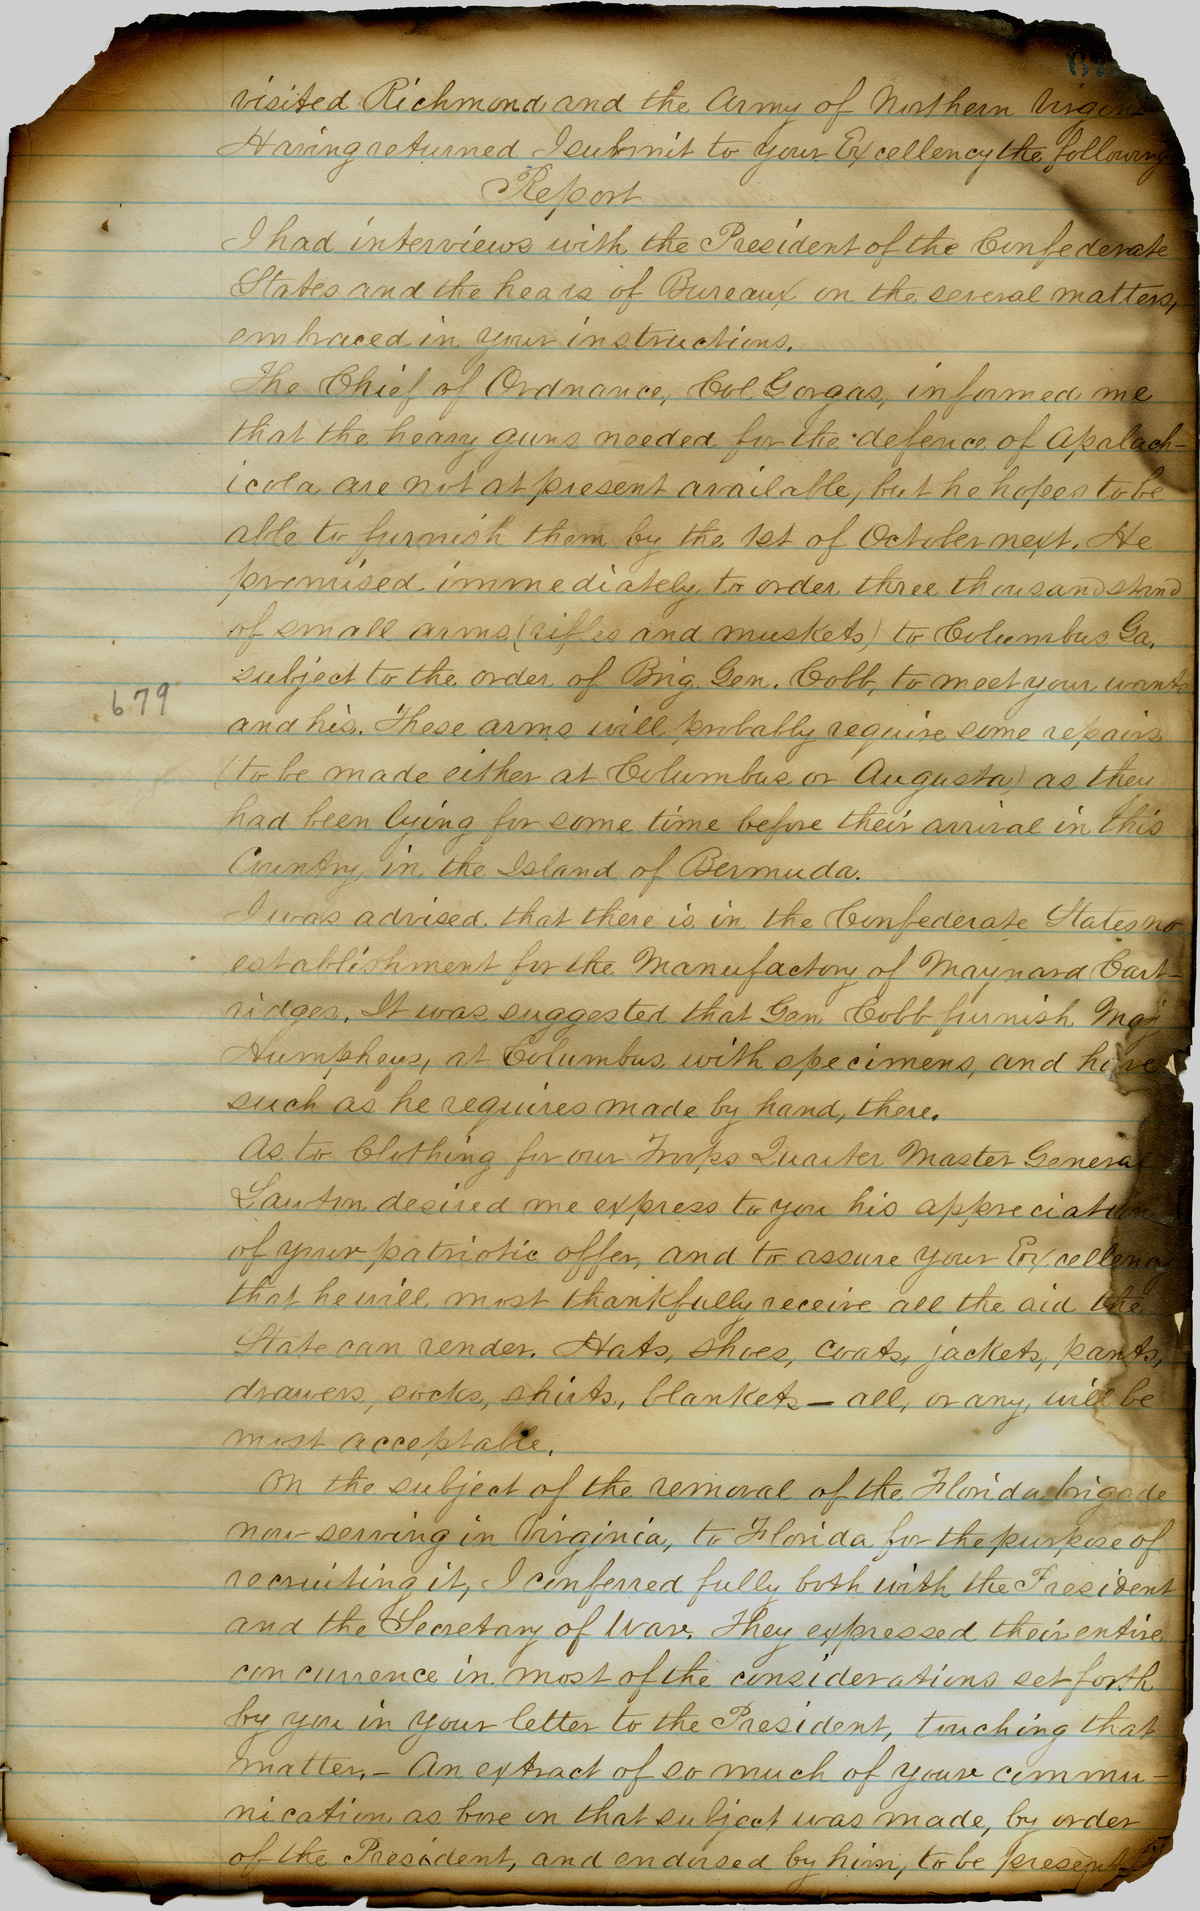 visited Richmond and the Army of Northern
Having returned I submit to your Excellency the following
Report
I had interviews with the President of the Confederate
States and the heads of Bureaux, on the several matters,
embraced in your instructions.
The Chief of Ordnance, Col Gorgas, informed me
that the heavy guns needed for the defence of Apalach-
icola are not at present available, but he hopes to be
able to furnish them by the 1st of October next. He
promised immediately to order three thousand stand
of small arms (rifles and muskets) to Columbus Ga.
subject to the order of Brig. Gen. Cobb, to meet your wants
679
and his. These arms will probably require some repairs
(to be made either at Columbus or Augusta) as they
had been lying for some time before their arrival in this
Country, in the Island of Bermuda.
I was advised that there is in the Confederate States no
establishment for the Manufactory of Maynard Cart-
ridges. It was suggested that Gen Cobb furnish Maj
Humpheys, at Columbus with specimens, and have
such as he requires made by hand, there.
As to Clothing for our Troops Quarter Master General
Lawton desired me express to you his appreciation
of your patriotic offer, and to assure your Excellency
that he will most thankfully receive all the aid the
State can render. Hats, shoes, coats, jackets, pants,
drawers, socks, shirts, blankets — all, or any, will be
most acceptable.
On the subject of the removal of the Florida brigade
now serving in Virginia, to Florida for the purpose of
recruiting it, I conferred fully both with the President
and the Secretary of War. They expressed their entire
concurrence in most of the considerations set forth
by you in your letter to the President, touching that
matter. — An extract of so much of your commu-
nication as bore on that subject was made, by order
of the President, and endorsed by him, to be